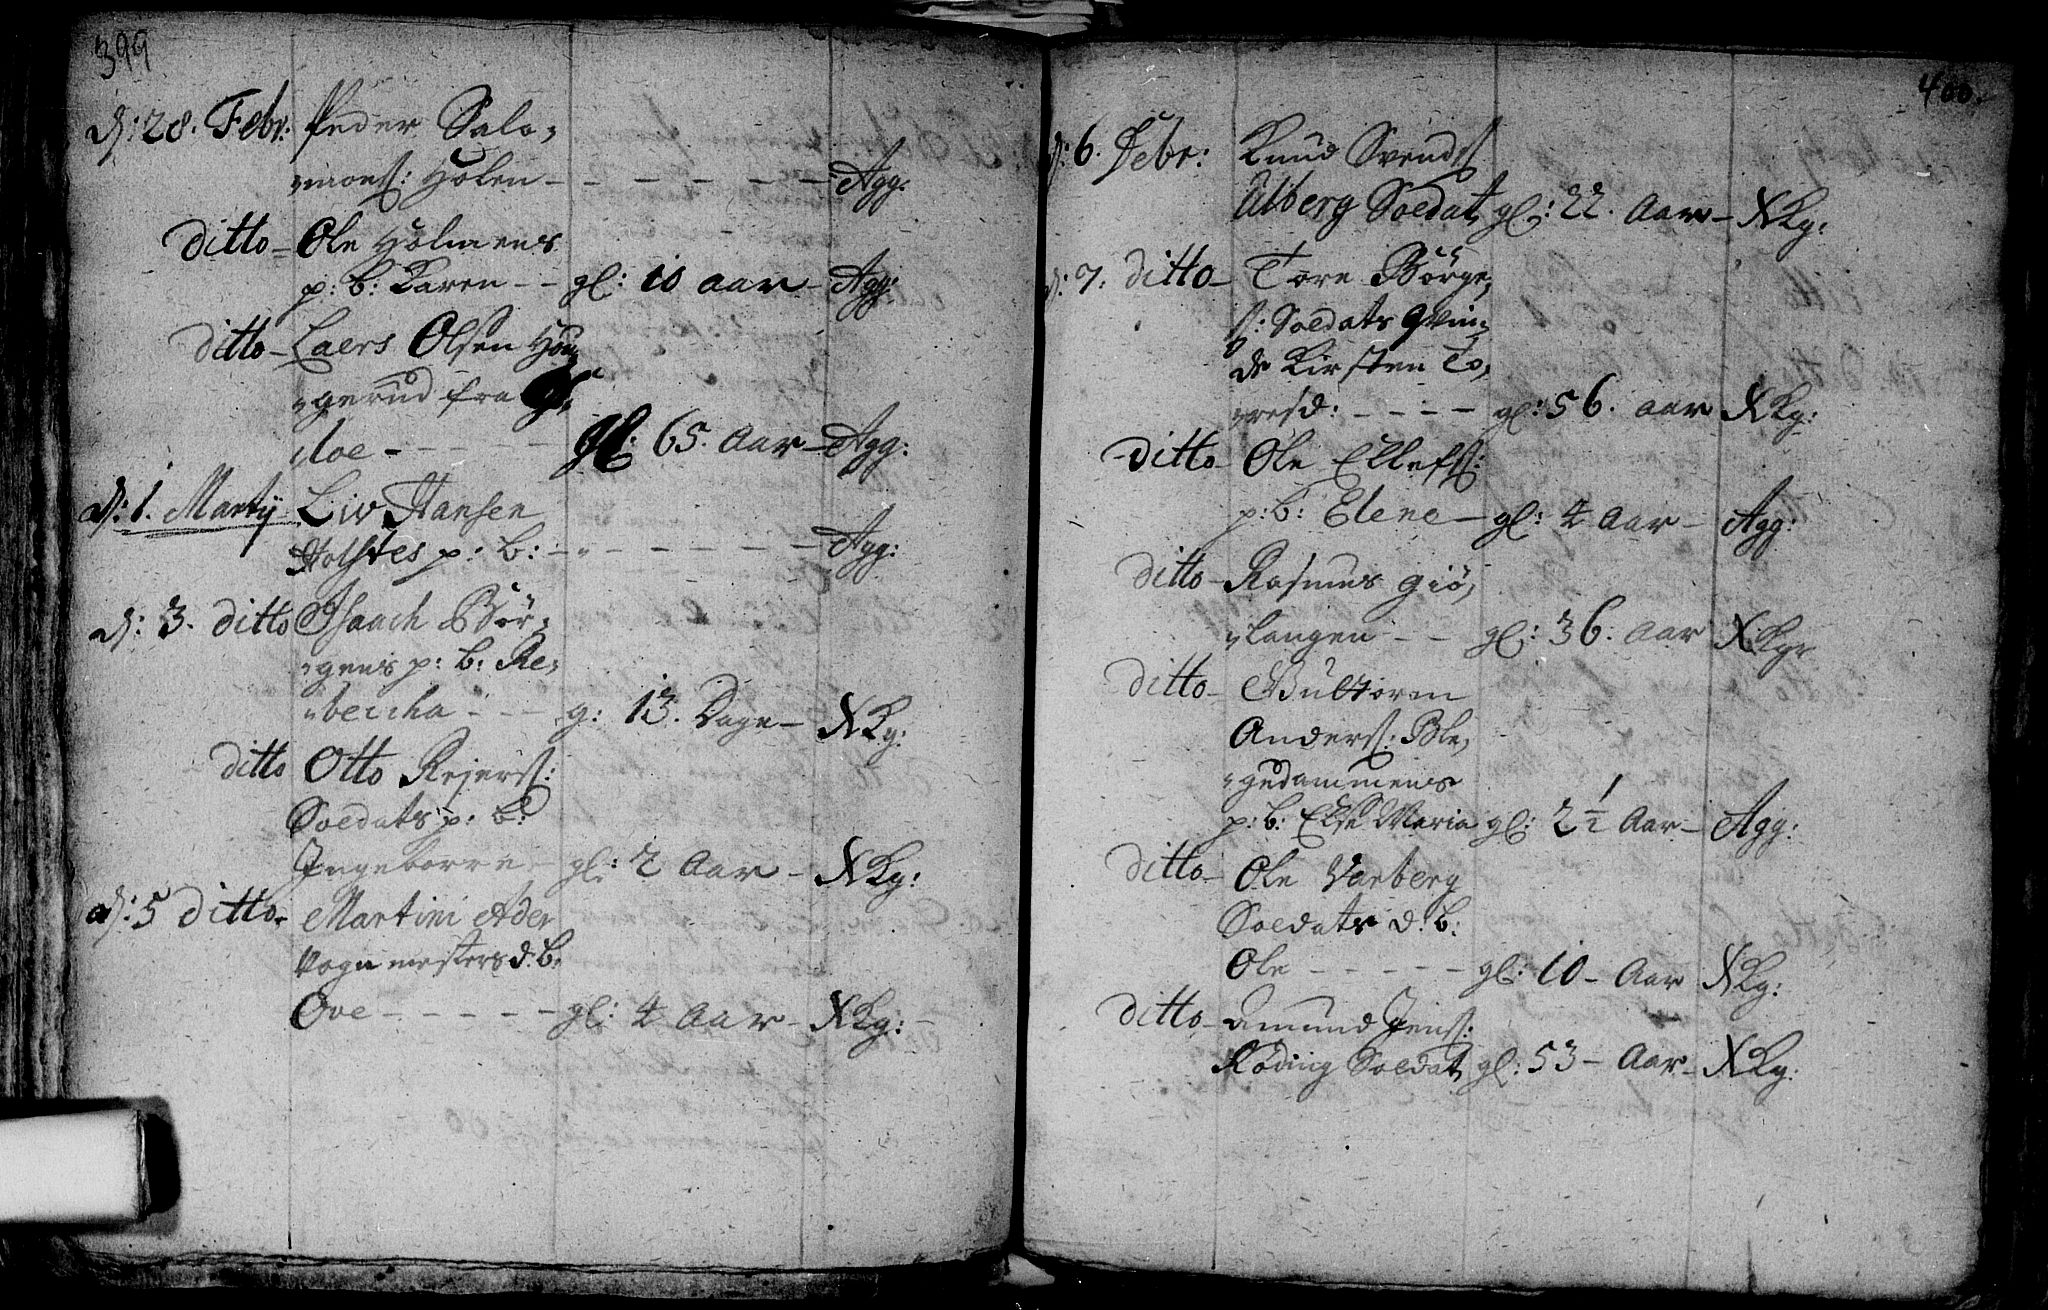 399
d: 28. Febr: Peder Salo,
"mons: Holen - - - - - - Agg:
ditto - Ole Holmens
p: b: Karen - - gl: 10 aar - Agg:
ditto - Laers Olsen Hou,
"gerud fra
gl: 65. Aar - Agg:
d: 1. Martij Liv Hansen
Holstes p: b: - - - - - - Agg:
d: 3. ditto Isaach Bör,
"gens p: b: Re,
"beccha - - - g: 13. Dage - XKg:
ditto Otto Rejerss:
Soldats p: b:
Ingeborre - gl: 2 Aar - XKg:
d: 5 ditto - Martini Ader
Vognmesters d: b:
Ove - - - - - gl: 4 Aar - XKg: -
400.
d: 6. Febr: Knud Svends
Alberg Soldat gl: 22. Aar - XKg:
d: 7. ditto - Tore Börge,
s: Soldats Qvin,
de Kirsten To,
"resd: - - - - gl: 56. aar XKg:
ditto - Ole Ellefss:
p: b: Elene - gl: 4 Aar - Agg:
ditto - Rasmus Giö,
"langen - - gl: 36. Aar XKgr
ditto -
Anderss: Ble,
"gedammens
p: b: Else Maria gl: 2 1/2 Aar - Agg:
ditto - Ole Varberg
Soldats d: b:
Ole - - - - - gl: 10 - Aar XKg:
ditto - Amund Jenss:
Röding Soldat gl: 53 - Aar - XKg: